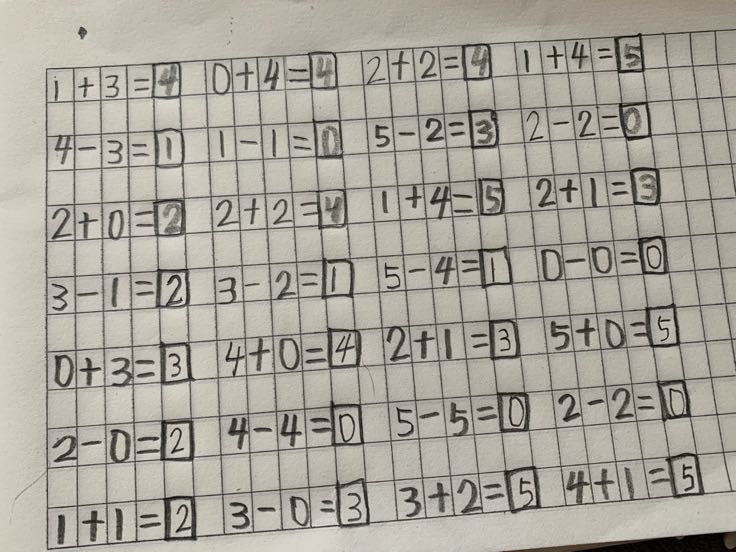 1+3=4 0+4=4 2+2=4 1+4=5
4-3=1 1-1=0 5-2=3 2-2=0
2+0=2 2+2=4 1+4=5 2+1=3
3-1=2 3-2=1 5-4=1 0-0=0
0+3=3 4+0=4 2+1=3 5+0=5
2-0=2 4-4=0 5-5=0 2-2=0
1+1=2 3-0=3 3+2=5 4+1=5